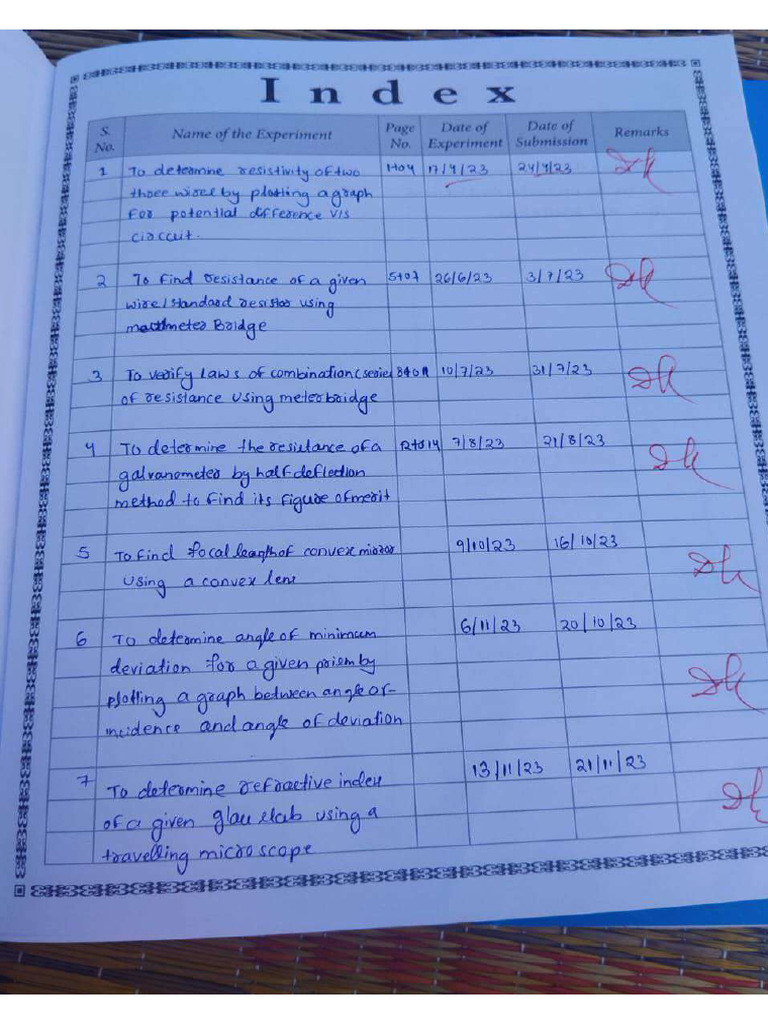 Index
S. No. Name of the Experiment Page No. Date of Experiment Date of Submission Remarks
1 To determine resistivity of two 1to4 17/4/23 24/4/23
three wires by plotting a graph
for potential difference v/s
circcuit.
2 To find resistance of a given 5to7 26/6/23 3/7/23
wire/standard resistor using
meter Bridge
3 To verify laws of combination (series) 8to11 10/7/23 31/7/23
of resistance using meterbridge
4 To determine the resistance of a 12to14 7/8/23 21/8/23
galvanometer by half deflection
method to find its figure of merit
5 To find focal length of convex mirror 9/10/23 16/10/23
using a convex lens
6 To determine angle of minimum 6/11/23 20/10/23
deviation for a given prism by
plotting a graph between angle of
incidence and angle of deviation
7 To determine refractive index 13/11/23 21/11/23
of a given glass slab using a
travelling microscope